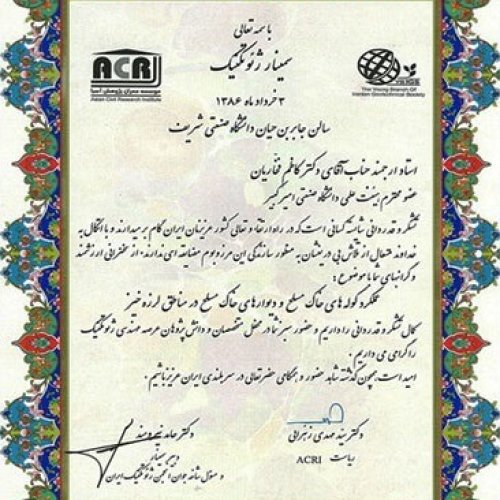 با سمه تعالی
سمینار ژئوتکنیک
ACRI
موسسه عمران پژوهش آسیا
Asian Civil Research Institute
The Young Branch Of
Iranian Geotechnical Society
۳ خرداد ماه ۱۳۸۶
سالن جابر بن حیان دانشگاه صنعتی شریف
استاد ارجمند جناب آقای دکتر کاظم فخاریان
عضو محترم هیئت علمی دانشگاه صنعتی امیرکبیر
تشکر و قدردانی شایسته کسانی است که در راه ارتقاء و تعالی کشور عزیزمان ایران گام برمیدارند و با اتکال به
خداوند متعال از تلاش بی دریغشان به منظور سازندگی این مرز و بوم مضایقه ای ندارند. از سخنرانی ارزشمند
و گرانبهای شما با موضوع :
عملکرد کوله های خاک مسلح و دیوارهای خاک مسلح در مناطق لرزه خیز
کمال تشکر و قدردانی را داریم و حضور سبز شما در محفل متخصصان و دانش پژوهان عرصه مهندسی ژئوتکنیک
را گرامی می داریم .
امید است همچون گذشته شاهد حضور و همگامی حضرتعالی در سربلندی ایران عزیز باشیم .
دکتر سید مهدی زهرائی
ریاست ACRI
دکتر حامد
دبیر سمینار
و مسئول شاخه جوان انجمن ژئوتکنیک ایران